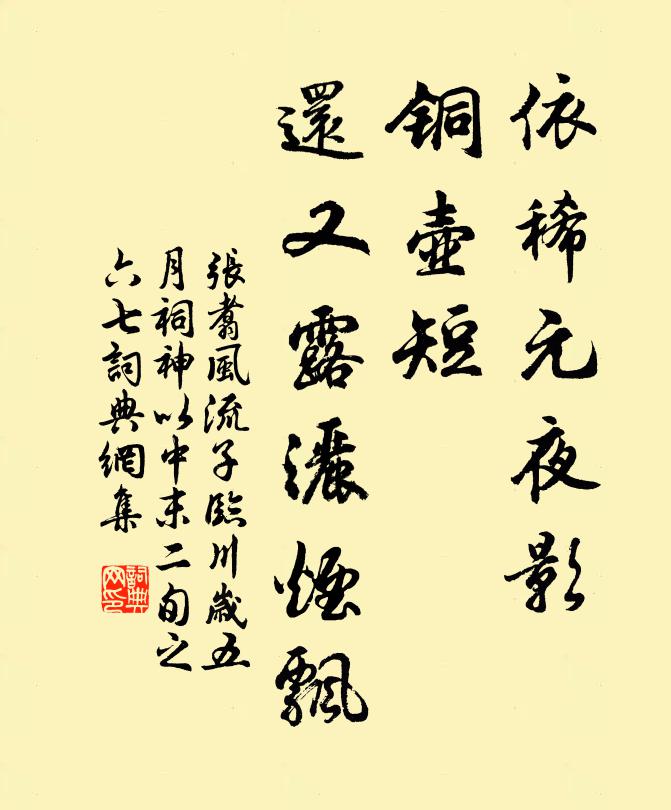 依稀元夜影
銅壺短
還又露灑煙飄
張翥風流子臨川歲五
月祠神以中末二旬之
六七詞典網集
詞典
网印